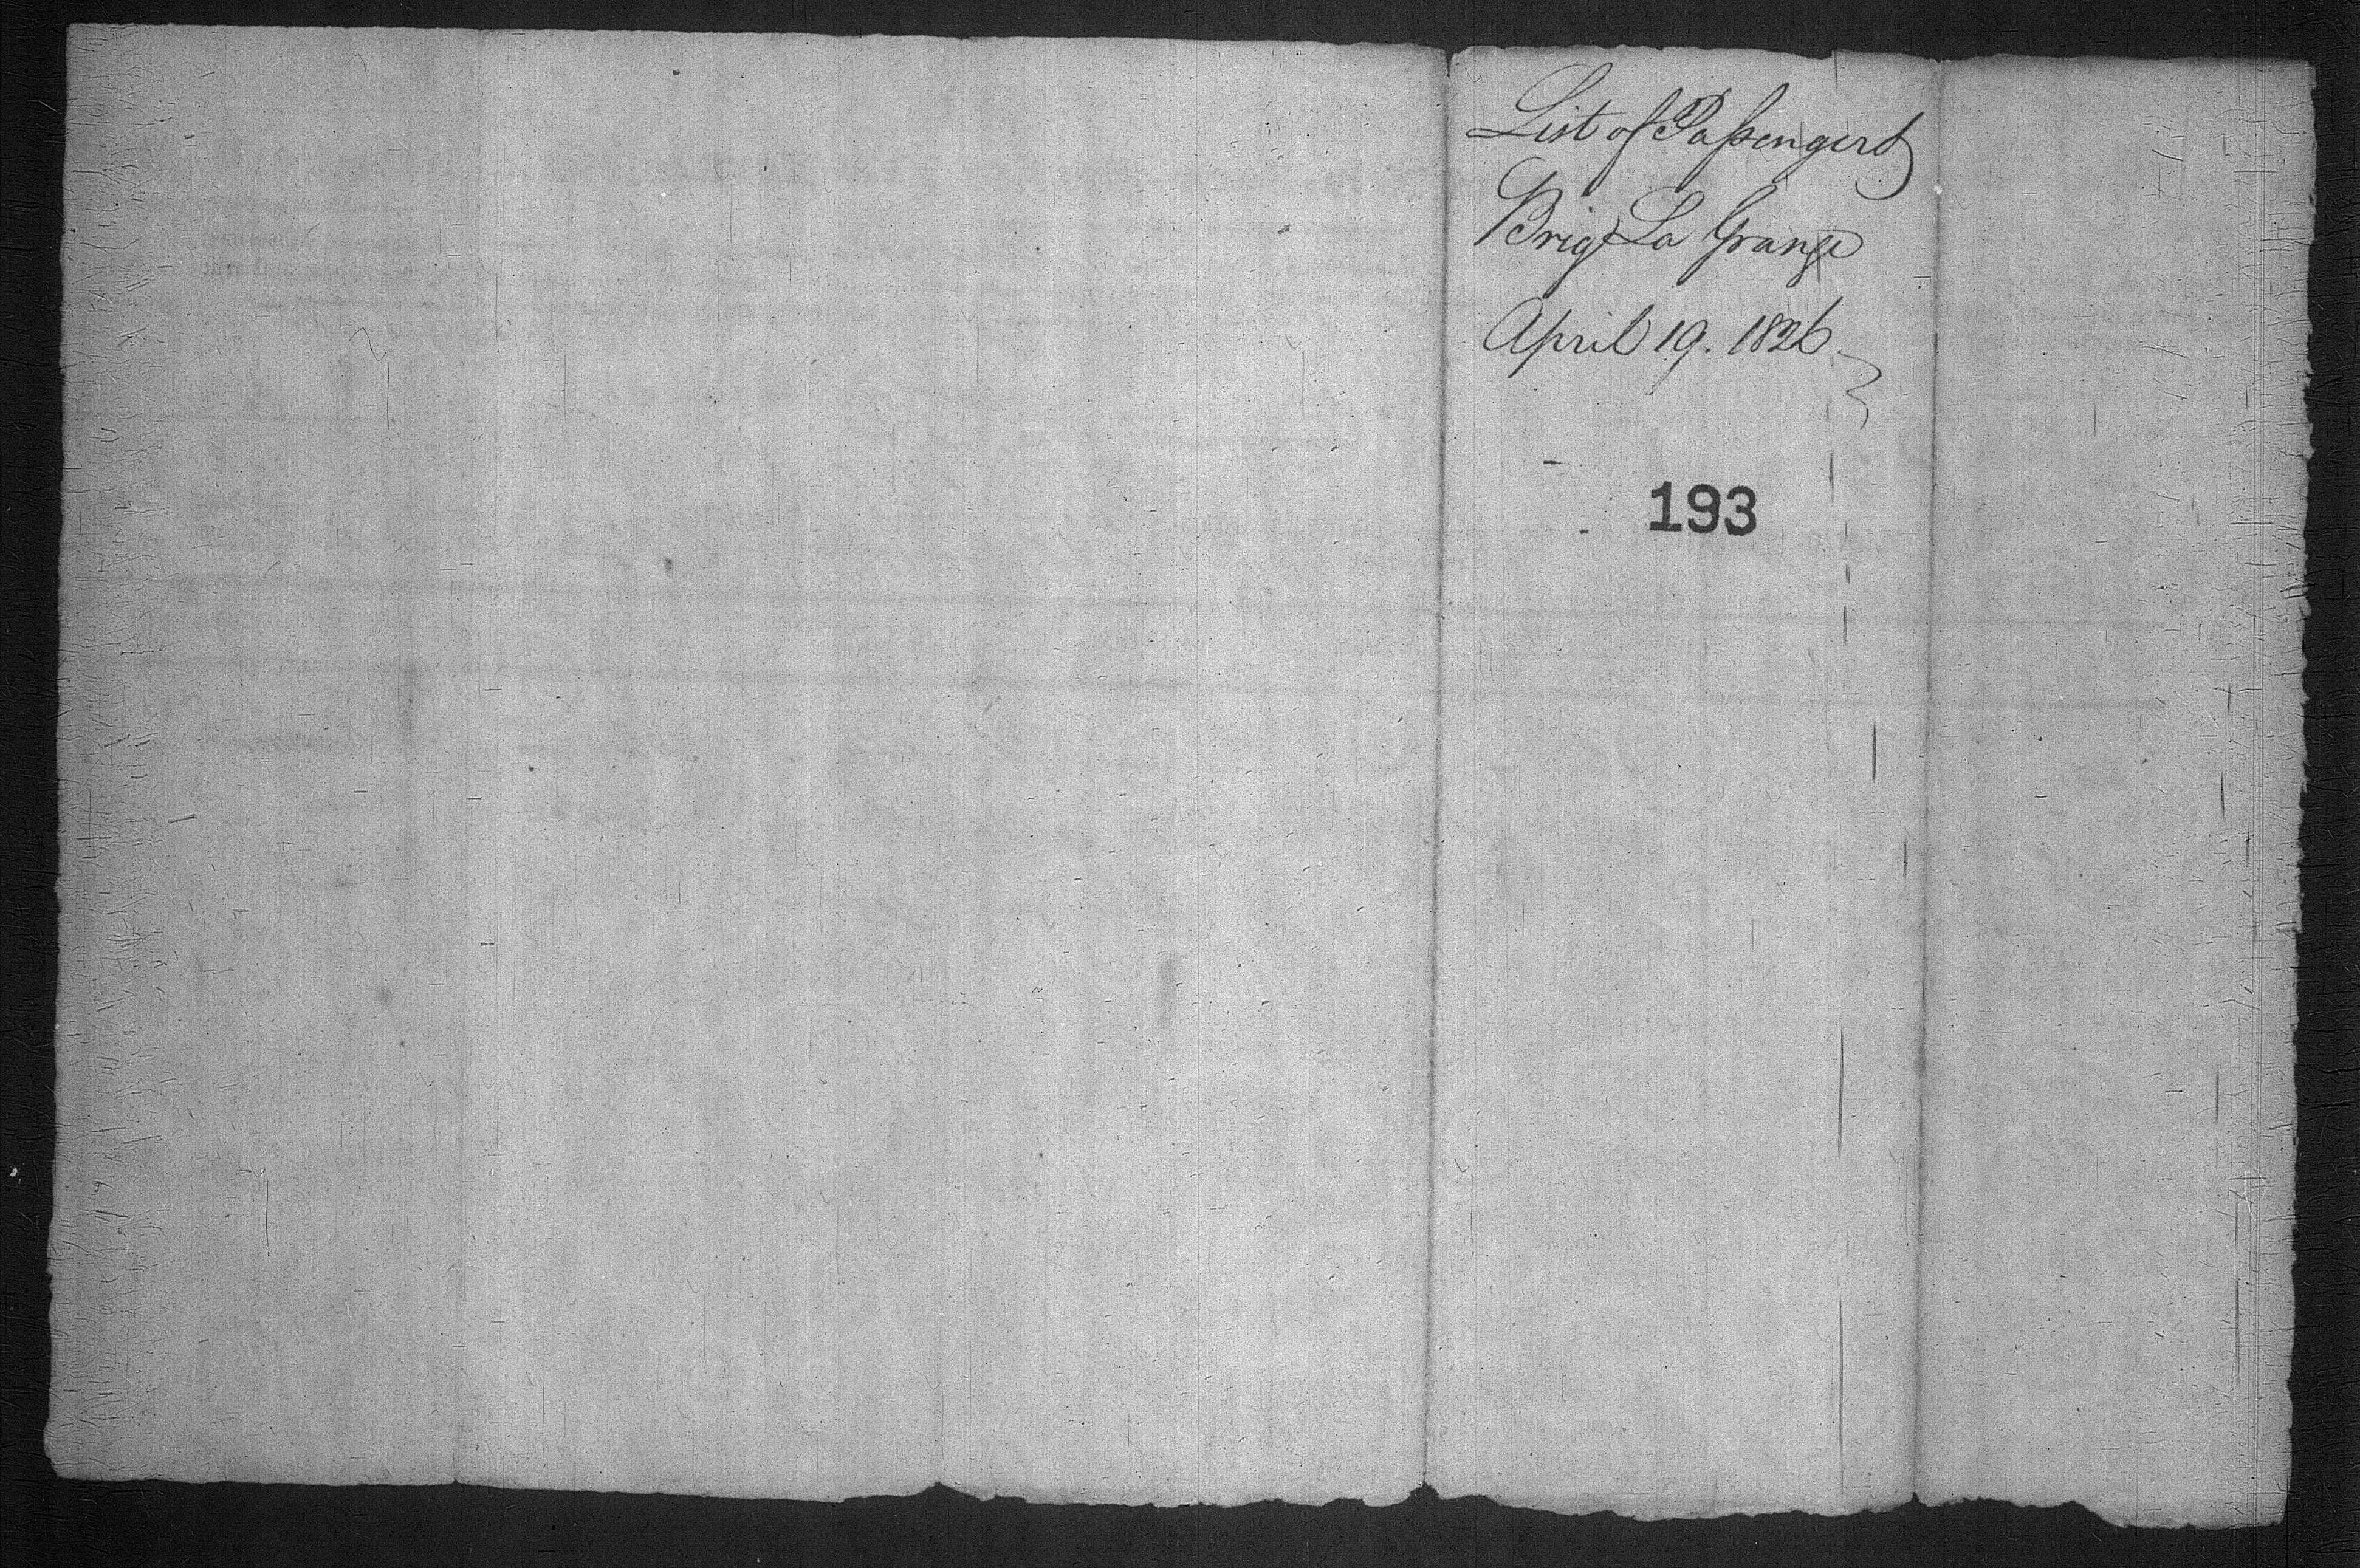 List of Passengers
Brig La Grange
April 19. 1826
193